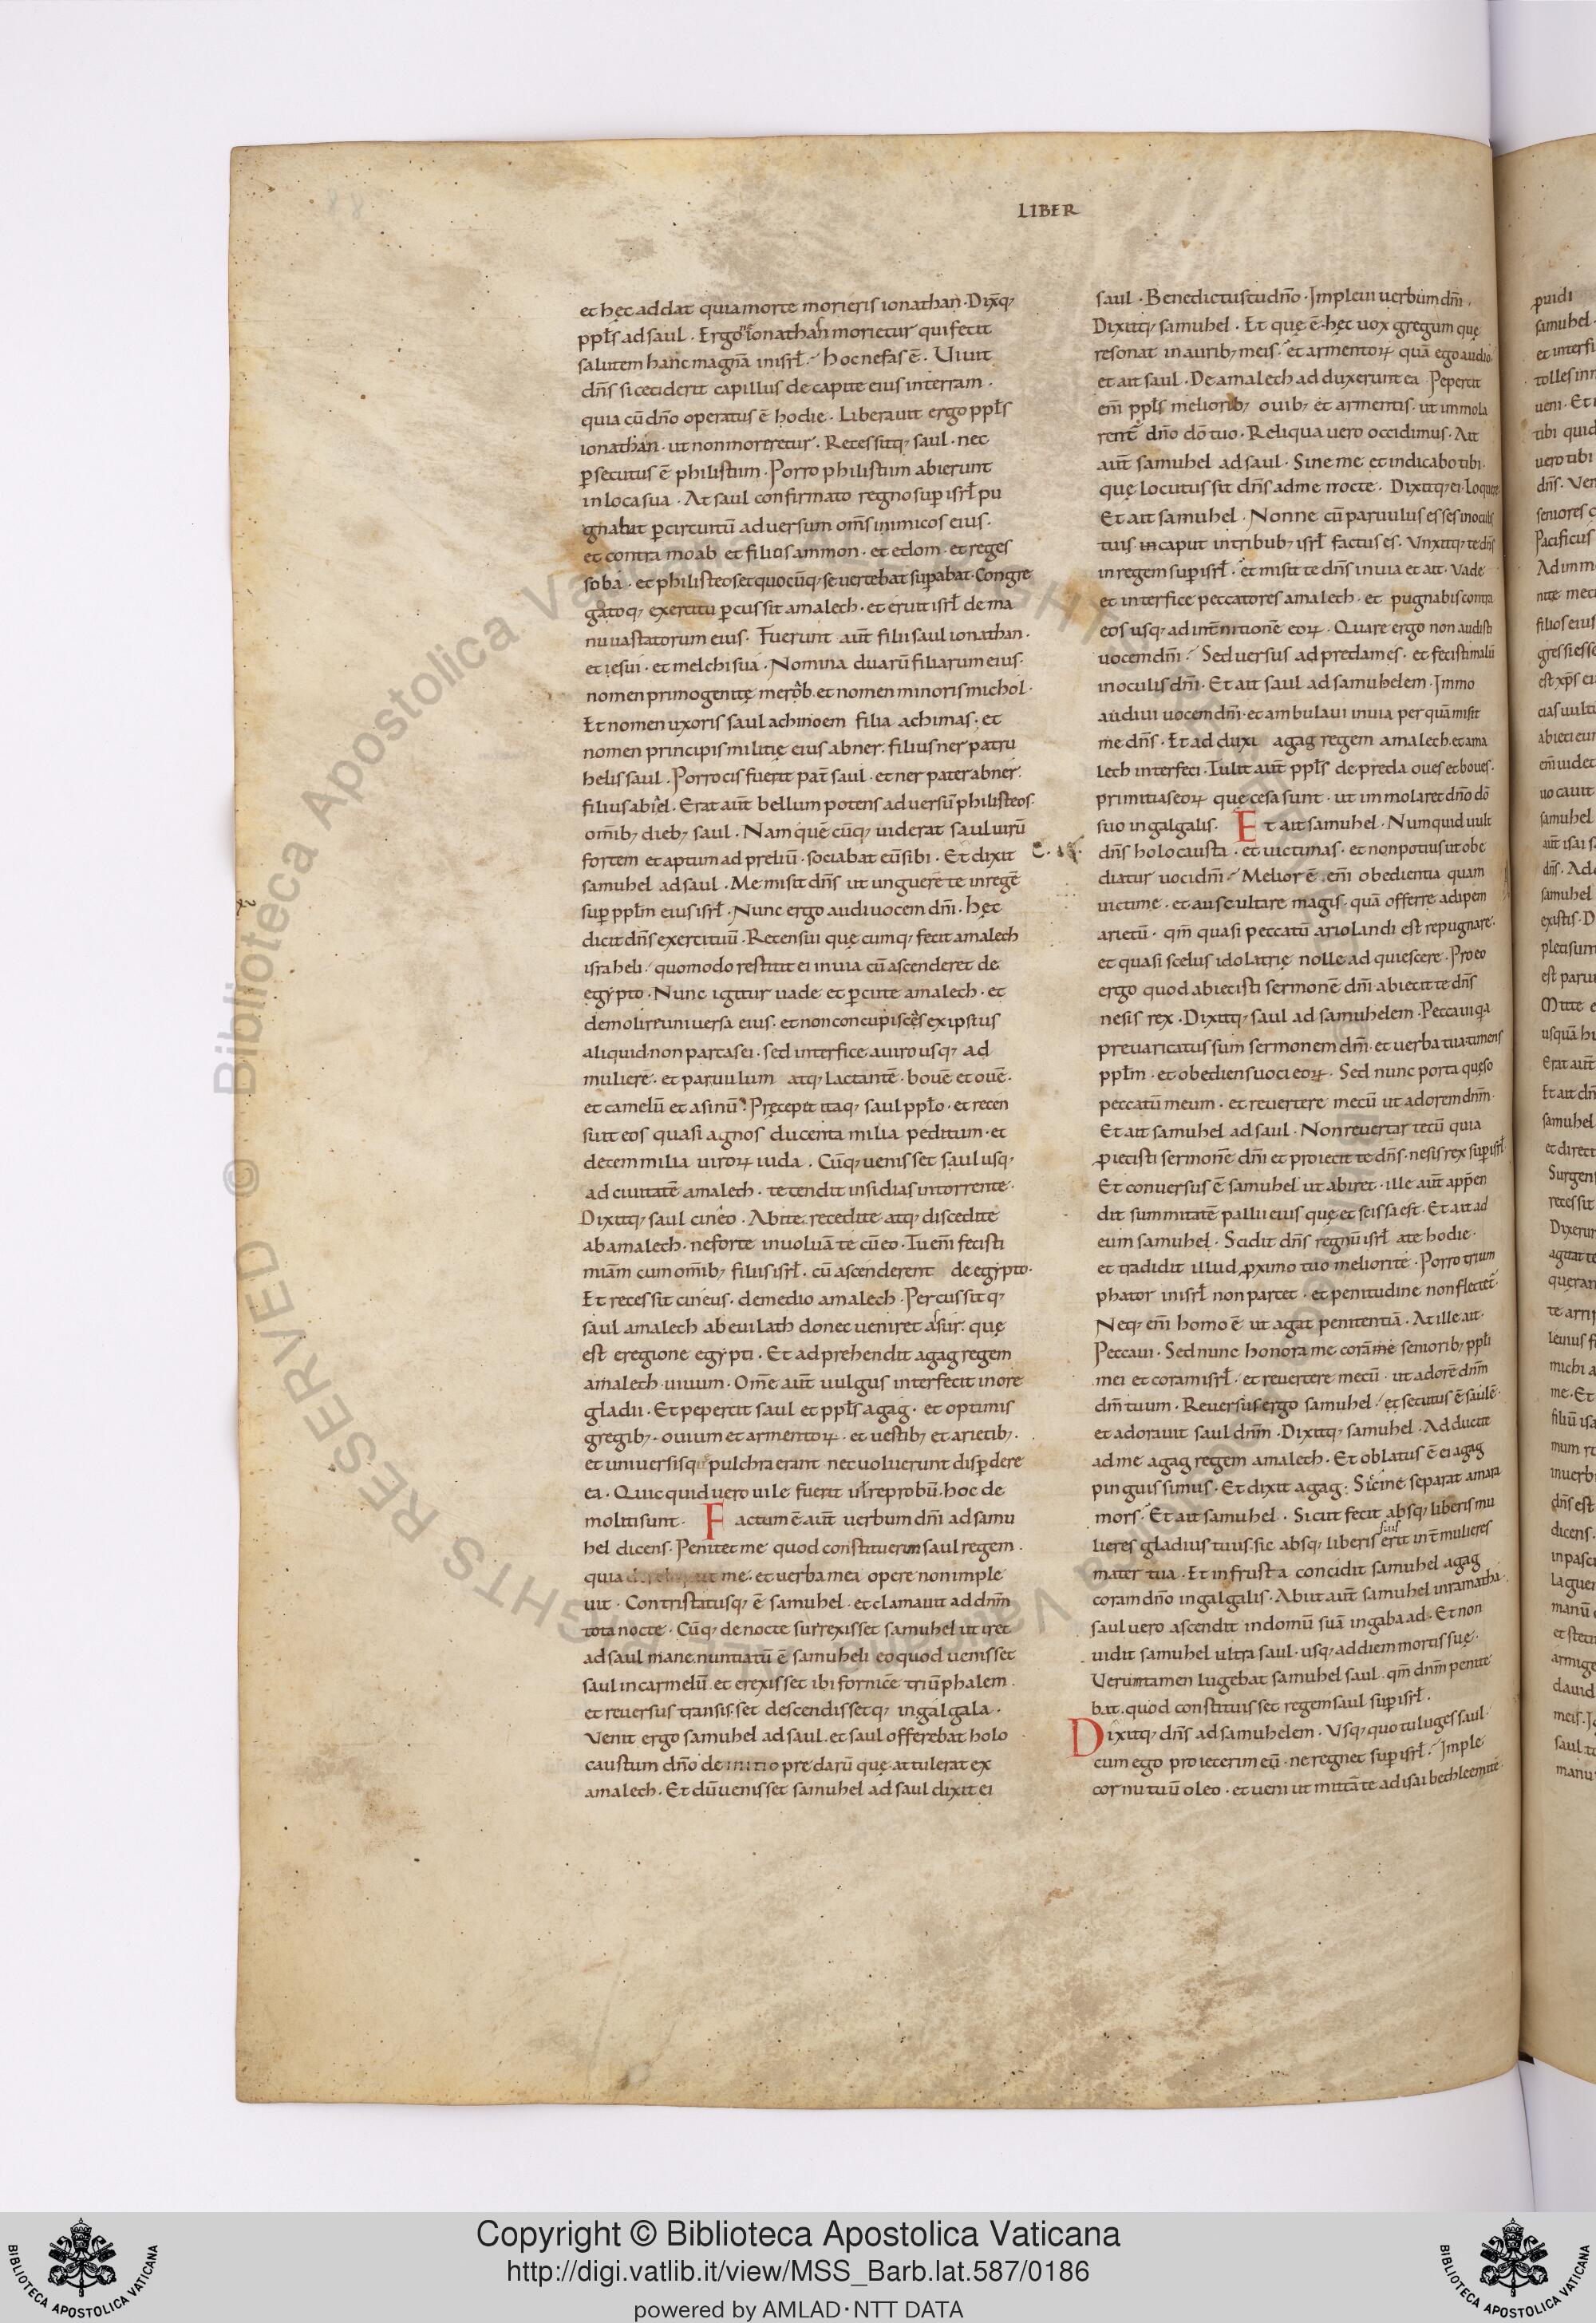 LIBER
et hęc addat quia morte morieris ionathan · Dix̄q;
ppl̄s ad saul · Ergo ne ionathan morietur qui fecit
salutem hanc magnā in isrl̄ · hoc nefas ē · Uiuit
dn̄s si ceciderit capillus de capite eius in terram ·
quia cū dn̄o operatus ē hodie · Liberauit ergo ppl̄s
ionathan · ut non moreretur · Recessitq; saul · nec
ꝑsecutus ē philistiim · Porro philistiim abierunt
in loca sua · At saul confirmato regno suꝑ isrl̄ pu
gnabat ꝑ circuitū aduersum om̄s inimicos eius ·
et contra moab et filios ammon · et edom · et reges
soba · et philisteos et quocūq; se uerterat suꝑabat · Congre
gatoq; exercitu ꝑcussit amalech · et eruit isrl̄ de ma
nu uastatorum eius · Fuerunt aūt filii saul ionathan ·
et iesui · et melchisua · Nomina duarū filiarum eius ·
nomen primogenitę merob · et nomen minoris michol ·
Et nomen uxoris saul achinoem filia achimas · et
nomen principis militię eius abner · filius ner patru
helis saul · Porro cis fuerit pat̄ saul · et ner pater abner ·
filius abiel · Erat aūt bellum potens aduersū philisteos ·
om̄ib; dieb; saul · Nam quē cūq; uiderat saul uirū
fortem et aptum ad preliū · sociabat eū sibi · Et dixit
samuhel ad saul · Me misit dn̄s ut unguerē te in regē
suꝑ ppl̄m eius isrl̄ · Nunc ergo audi uocem dn̄i · hęc
dicit dn̄s exercituū · Recensui quę cumq; fecit amalech
israheli · quomodo restitit ei in uia cū ascenderet de
egypto · Nunc igitur uade et ꝑcute amalech · et
demolire uniuersa eius · et non concupisces ex ipsius
aliquid non parcas ei · sed interfice a uiro usq; ad
mulierē · et paruulum atq; lactantē · bouē et ouē ·
et camelū et asinū · Pręcepit itaq; saul ppl̄o · et recen
suit eos quasi agnos ducenta milia peditum · et
decem milia uiroꝝ iuda · Cūq; uenisset saul usq;
ad ciuitatē amalech · tetendit insidias in torrente ·
Dixitq; saul cineo · Abite · recedite atq; discedite
ab amalech · ne forte inuoluā te cū eo · Tu em̄ fecisti
miām cum om̄ib; filiis isrl̄ · cū ascenderent de egypto ·
Et recessit cineus · de medio amalech · Percussitq;
saul amalech ab euilath donec ueniret asur · quę
est e regione egypti · Et adprehendit agag regem
amalech uiuum · Om̄e aūt uulgus interfecit in ore
gladii · Et pepercit saul et ppl̄s agag · et optimis
gregib; · ouium et armentoꝝ · et uestib; et arietib; ·
et uniuersis quę pulchra erant nec uoluerunt disꝑdere
ea · Quicquid uero uile fuerit ul̄ reprobū · hoc de
moliti sunt · Factum ē aūt uerbum dn̄i ad samu
hel dicens · Penitet me quod constituerim saul regem ·
quia me · et uerba mea opere non imple
uit · Contristatusq; ē samuhel · et clamauit ad dn̄m
tota nocte · Cūq; de nocte surrexisset samuhel ut iret
ad saul mane · nuntiatū ē samuheli eo quod uenisset
saul in carmelū · et erexisset ibi fornicē triūphalem ·
et reuersus transisset descendissetq; in galgala ·
Venit ergo samuhel ad saul · et saul offerebat holo
caustum dn̄o de initio predarū quę attulerat ex
amalech · Et dū uenisset samuhel ad saul dixit ei
saul · Benedictus tu dn̄o · Impleui uerbum dn̄i ·
Dixitq; samuhel · Et quę ē hęc uox gregum quę
resonat in aurib; meis · et armentoꝝ quā ego audio
et ait saul · De amalech adduxerunt ea · Pepercit
em̄ ppl̄s meliorib; ouib; et armentis · ut immola
rent̄ dn̄o dō tuo · Reliqua uero occidimus · Ait
aūt samuhel ad saul · Sine me et indicabo tibi ·
quę locutus sit dn̄s ad me nocte · Dixitq; ei · Loquere
Et ait samuhel · Nonne cū paruulus esses in oculis
tuis caput in tribub; isrl̄ factus es · Vnxitq; te dn̄s
in regem suꝑ isrl̄ · et misit te dn̄s in uia et ait · Uade
et interfice peccatores amalech · et pugnabis contra
eos usq; ad int̄nitionē eoꝝ · Quare ergo non audisti
uocem dn̄i · Sed uersus ad predam es · et fecisti malū
in oculis dn̄i · Et ait saul ad samuhelem · Immo
audiui uocem dn̄i · et ambulaui in uia per quā misit
me dn̄s · Et adduxi agag regem amalech · et ama
lech interfeci · Tulit aūt ppl̄s de preda oues et boues ·
primitias eoꝝ quę cesa sunt · ut immolaret dn̄o dō
suo in galgalis · Et ait samuhel · Numquid uult
dn̄s holocausta · et uictimas · et non potius ut obe
diatur uoci dn̄i · Melior ē · em̄ obedientia quam
uictimę · et auscultare magis · quā offerre adipem
arietū · qm̄ quasi peccatū ariolandi est repugnare ·
et quasi scelus idolatrię nolle adquiescere · Pro eo
ergo quod abiecisti sermonē dn̄i · abiecit te dn̄s
ne sis rex · Dixitq; saul ad samuhelem · Peccaui qa
preuaricatus sum sermonem dn̄i · et uerba tua timens
ppl̄m · et obediens uoci eoꝝ · Sed nunc porta quęso
peccatū meum · et reuertere mecū ut adorem dn̄m ·
Et ait samuhel ad saul · Non reuertar tecū quia
ꝓiecisti sermonē dn̄i et proiecit te dn̄s · ne sis rex suꝑ isrl̄ ·
Et conuersus ē samuhel ut abiret · ille aūt app̄en
dit summitatē pallii eius quę et scissa est · Et ait ad
eum samuhel · Scidit dn̄s regnū isrl̄ a te hodie ·
et tradidit illud ꝓximo tuo meliori te · Porro trium
phator in isrl̄ non parcet · et penitudine non flectet̄ ·
Neq; em̄ homo ē ut agat penitentiā · At ille ait ·
Peccaui · Sed nunc honora me corā seniorib; ppl̄i
mei et coram isrl̄ · et reuertere mecū · ut adorē dn̄m
dm̄ tuum · Reuersus ergo samuhel · et secutus ē saulē ·
et adorauit saul dn̄m · Dixitq; samuhel · Adducite
ad me agag regem amalech · Et oblatus ē ei agag
pinguissimus · Et dixit agag · Siccine separat amara
mors · Et ait samuhel · Sicut fecit absq; liberis mu
lieres gladius tuus · sic absq; liberis erit int̄ mulieres
mater tua · Et in frusta concidit samuhel agag
coram dn̄o in galgalis · Abiit aūt samuhel in ramatha ·
saul uero ascendit in domū suā in gabaad · Et non
uidit samuhel ultra saul · usq; ad diem mortis suę ·
Uerumtamen lugebat samuhel saul · qm̄ dn̄m penite
bat · quod constituisset regem saul suꝑ isrl̄ ·
Dixitq; dn̄s ad samuhelem · Vsq; quo tu luges saul
cum ego proiecerim eū · ne regnet suꝑ isrl̄ · Imple
cornu tuū oleo · et ueni ut mittā te ad isai bethleemitē ·
Copyright © Biblioteca Apostolica Vaticana
http://digi.vatlib.it/view/MSS_Barb.lat.587/0186
powered by AMLAD·NTT DATA
BIBLIOTECA APOSTOLICA VATICANA
BIBLIOTECA APOSTOLICA VATICANA
© Biblioteca Apostolica Vaticana ALL RIGHTS RESERVED